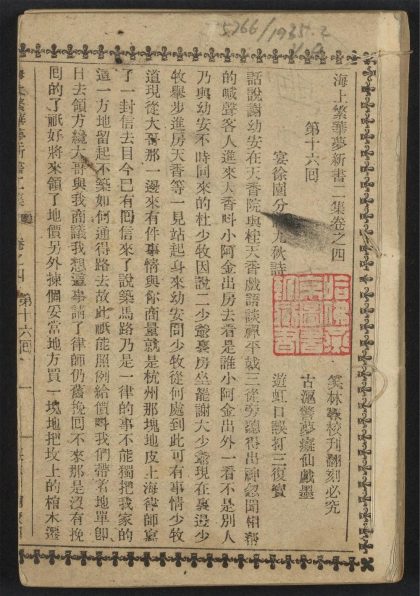 5766/1935.2
海上繁華夢新書二集卷之四
第十六回
宴徐園分詠九秋詩
遊虹口誤打三復寶
笑林報校刊翻刻必究
古滬警夢癡仙戲墨
話說謝幼安在天香院與桂天香戲語談禪平戟三從旁聽得出神忽聞相幫
的喊聲客人進來天香呌小阿金出房去看是誰小阿金出外一看不是別人
乃與幼安不時同來的杜少牧因說二少爺裏房坐罷謝大少爺現在裏邊少
牧舉步進房天香等一見站起身來幼安問少牧從何處到此可有事情少牧
道現從大哥那一邊來有件事情與你商量就是杭州那塊地皮上海律師寫
了一封信去目今已有回信來了說築馬路乃是一律的事不能獨把我家的
這一方地留起不築如何通得路去故此祇能照例給價呌我們帶着地單卽
日去領方纔大哥與我商議我想這事請了律師仍舊挽回不來那是沒有挽
回的了祇好將來領了地價另外揀個妥當地方買一塊地把坟上的柏木遷
海上繁華夢新書二集
卷之四
第十六回
一